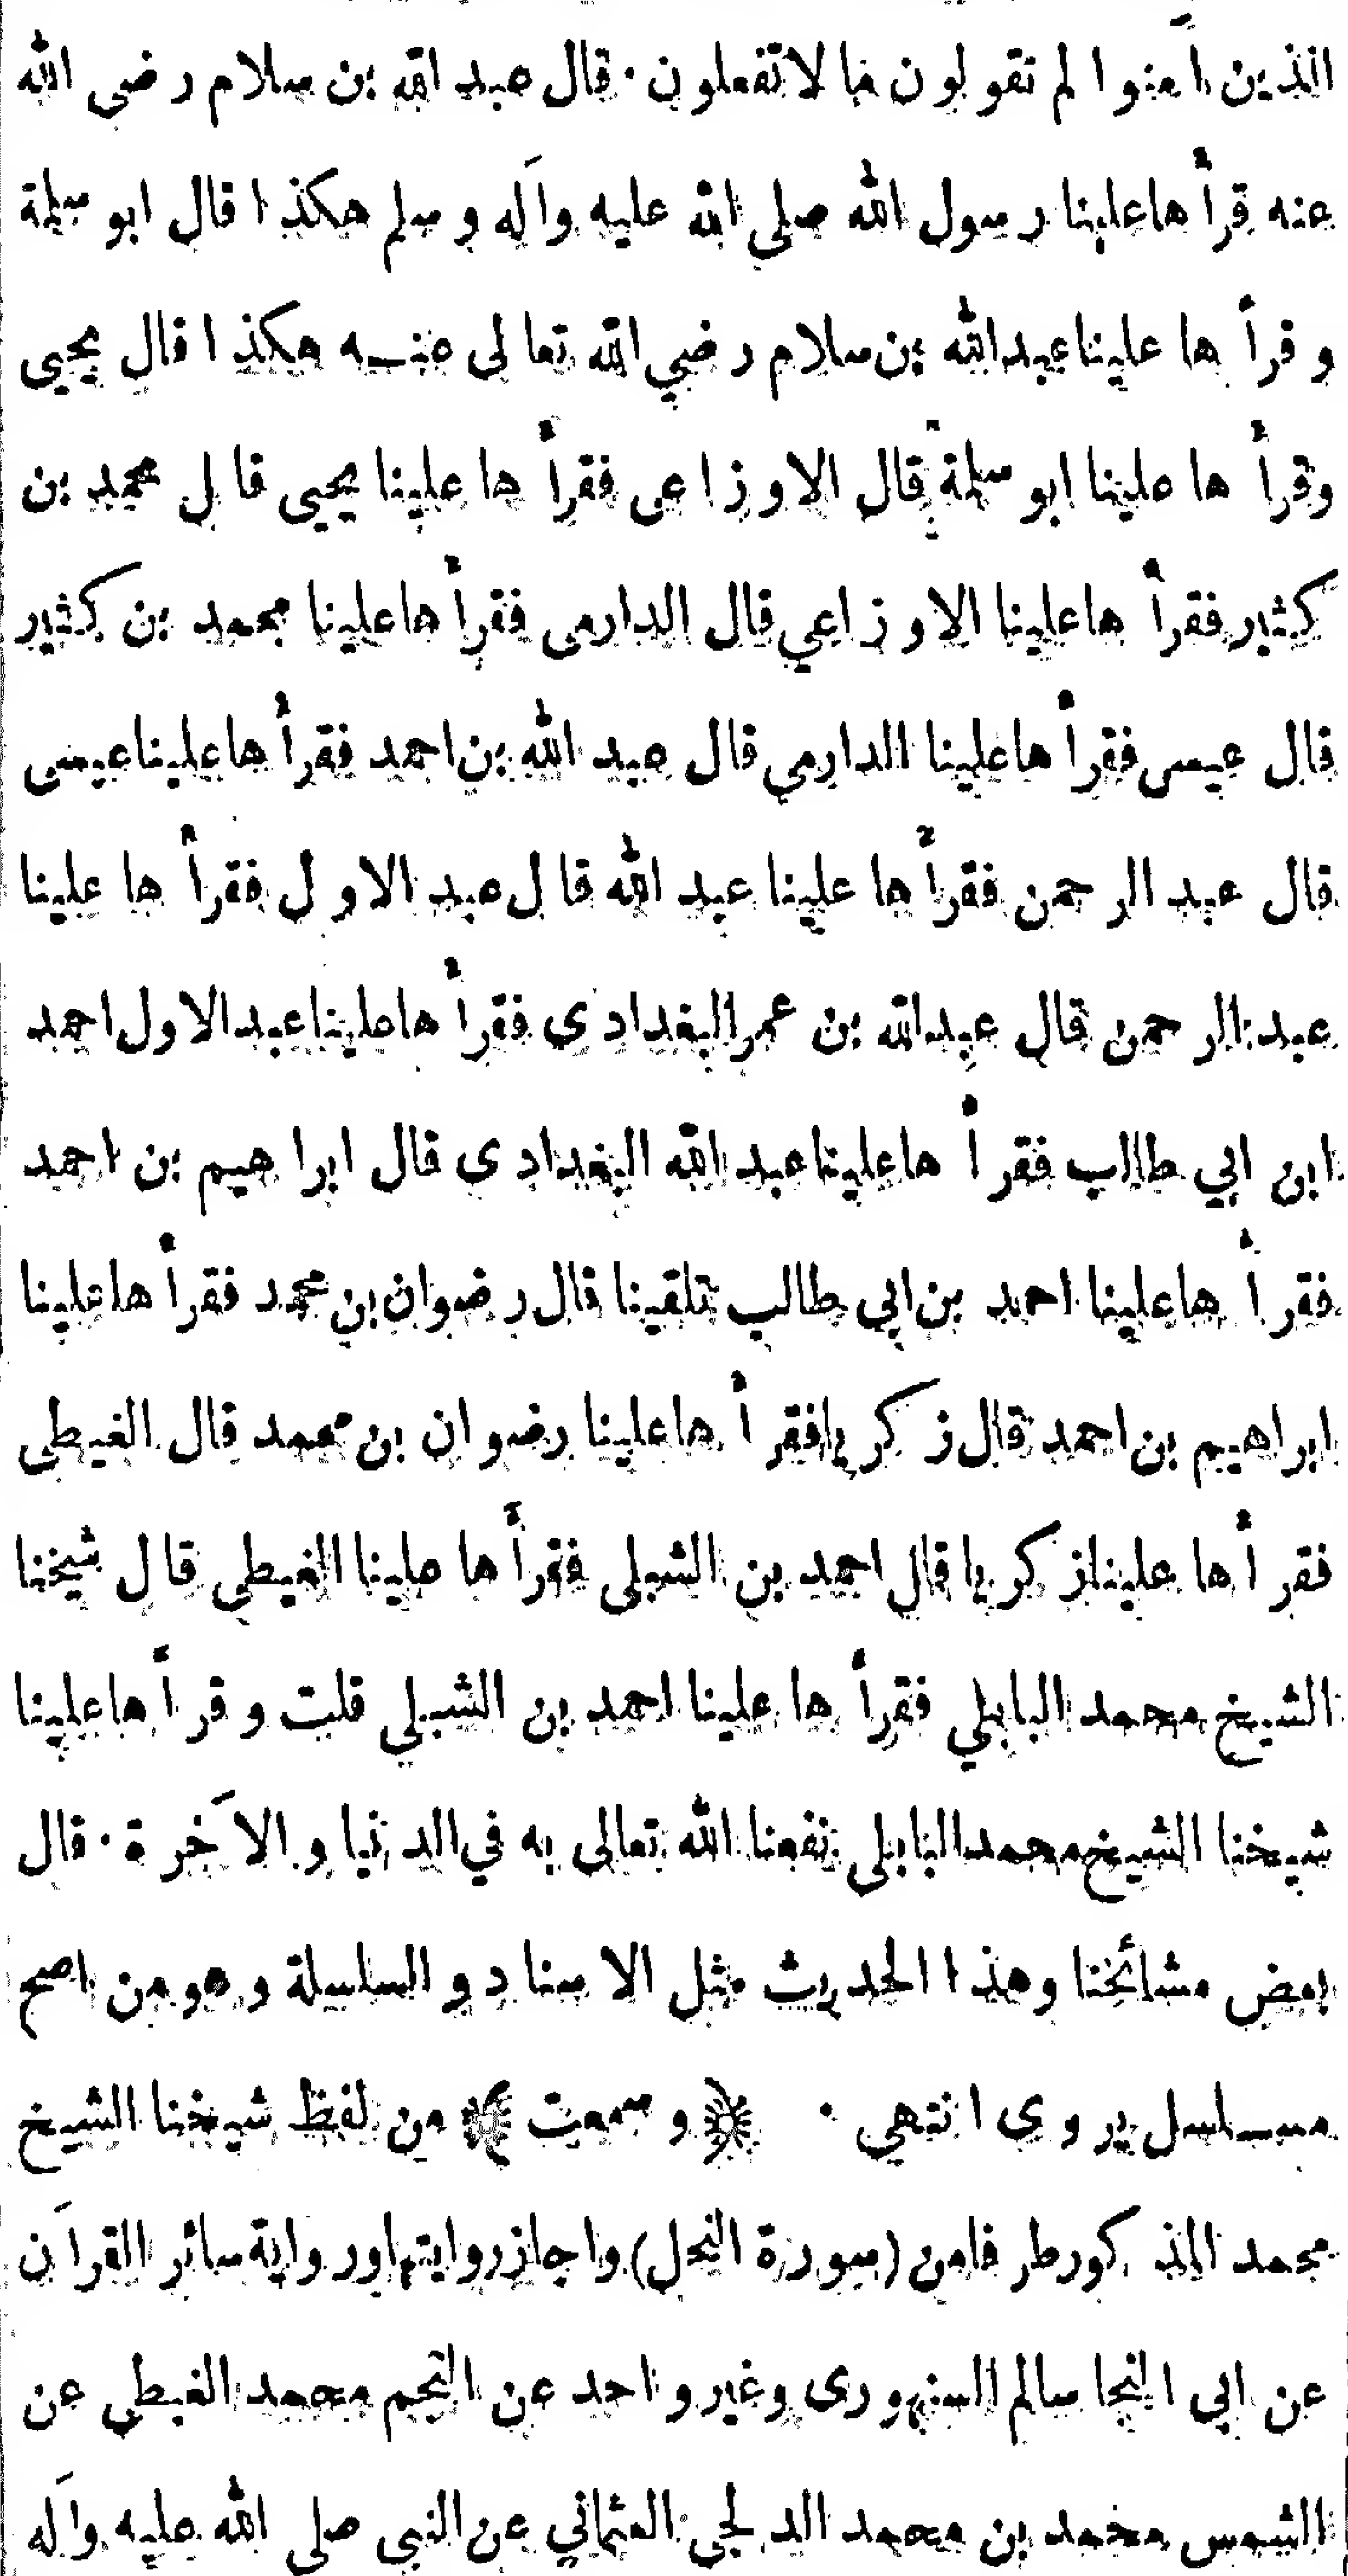 الذين آمنوا لم تقولون ما لا تفعلون. قال عبد الله بن سلام رضى الله
عنه قرأها علينا رسول الله صلى الله عليه وآله وسلم هكذا قال ابو سلمة
و قرأ ها علينا عبدالله بن سلام رضي الله تعالى عنه هكذا قال يحيى
وقرأ ها علينا ابو سلمة قال الاوزاعى فقرأ ها علينا يحيى قال محمد بن
كثير فقرأ ها علينا الاوزاعي قال الدارمى فقرأ ها علينا محمد بن كثير
قال عيسى فقرأ ها علينا الدارمي قال عبد الله بن احمد فقرأ ها علينا عيسى
قال عبد الرحمن فقرأ ها علينا عبد الله قال عبد الاول فقرأ ها علينا
عبد الرحمن قال عبدالله بن عمر البغدادى فقرأ ها علينا عبد الاول احمد
ابن ابي طالب فقرأ ها علينا عبد الله البغدادى قال ابراهيم بن احمد
فقرأ ها علينا احمد بن ابى طالب تلقينا قال رضوان بن محمد فقرأ ها علينا
ابراهيم بن احمد قال زكريا فقرأ ها علينا رضوان بن محمد قال الغيطى
فقرأ ها علينا زكريا قال احمد بن الشبلى فقرأ ها علينا الغيطي قال شيخنا
الشيخ محمد البابلي فقرأ ها علينا احمد بن الشبلي قلت و قرأ ها علينا
شيخنا الشيخ محمد البابلى نفعنا الله تعالى به في الدنيا و الآخرة. قال
بعض مشائخنا وهذا الحديث مثل الاسناد و السلسلة و هو من اصح
مسلسل يروى انتهي. و سمعت من لفظ شيخنا الشيخ
محمد المذكور طرفا من (سورة النحل) واجاز روايتها ورواية سائر القرآن
عن ابى النجا سالم السنهورى وغير واحد عن النجم محمد الغيطي عن
الشمس محمد بن محمد الدلجى العثماني عن النبى صلى الله عليه وآله